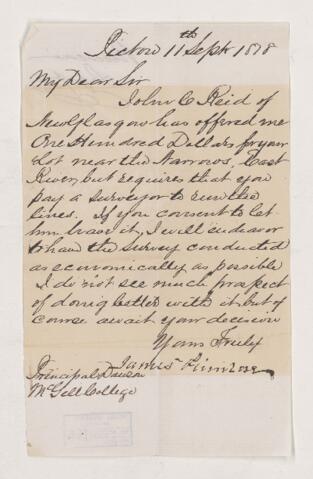 Pictou 11th Sept 1878
My Dear Sir
John C Reid of
New Glasgow has offered me
One Hundred Dollars for your
Lot near the Narrows, East
River, but requires that you
pay a surveyor to run the
lines. If you consent to let
him have it, I will endeavor
to have the survey conducted
as economically as possible
I do not see much prospect
of doing better with it but of
course await your decision
Yours Truly
James
Principal Dawson
McGill College